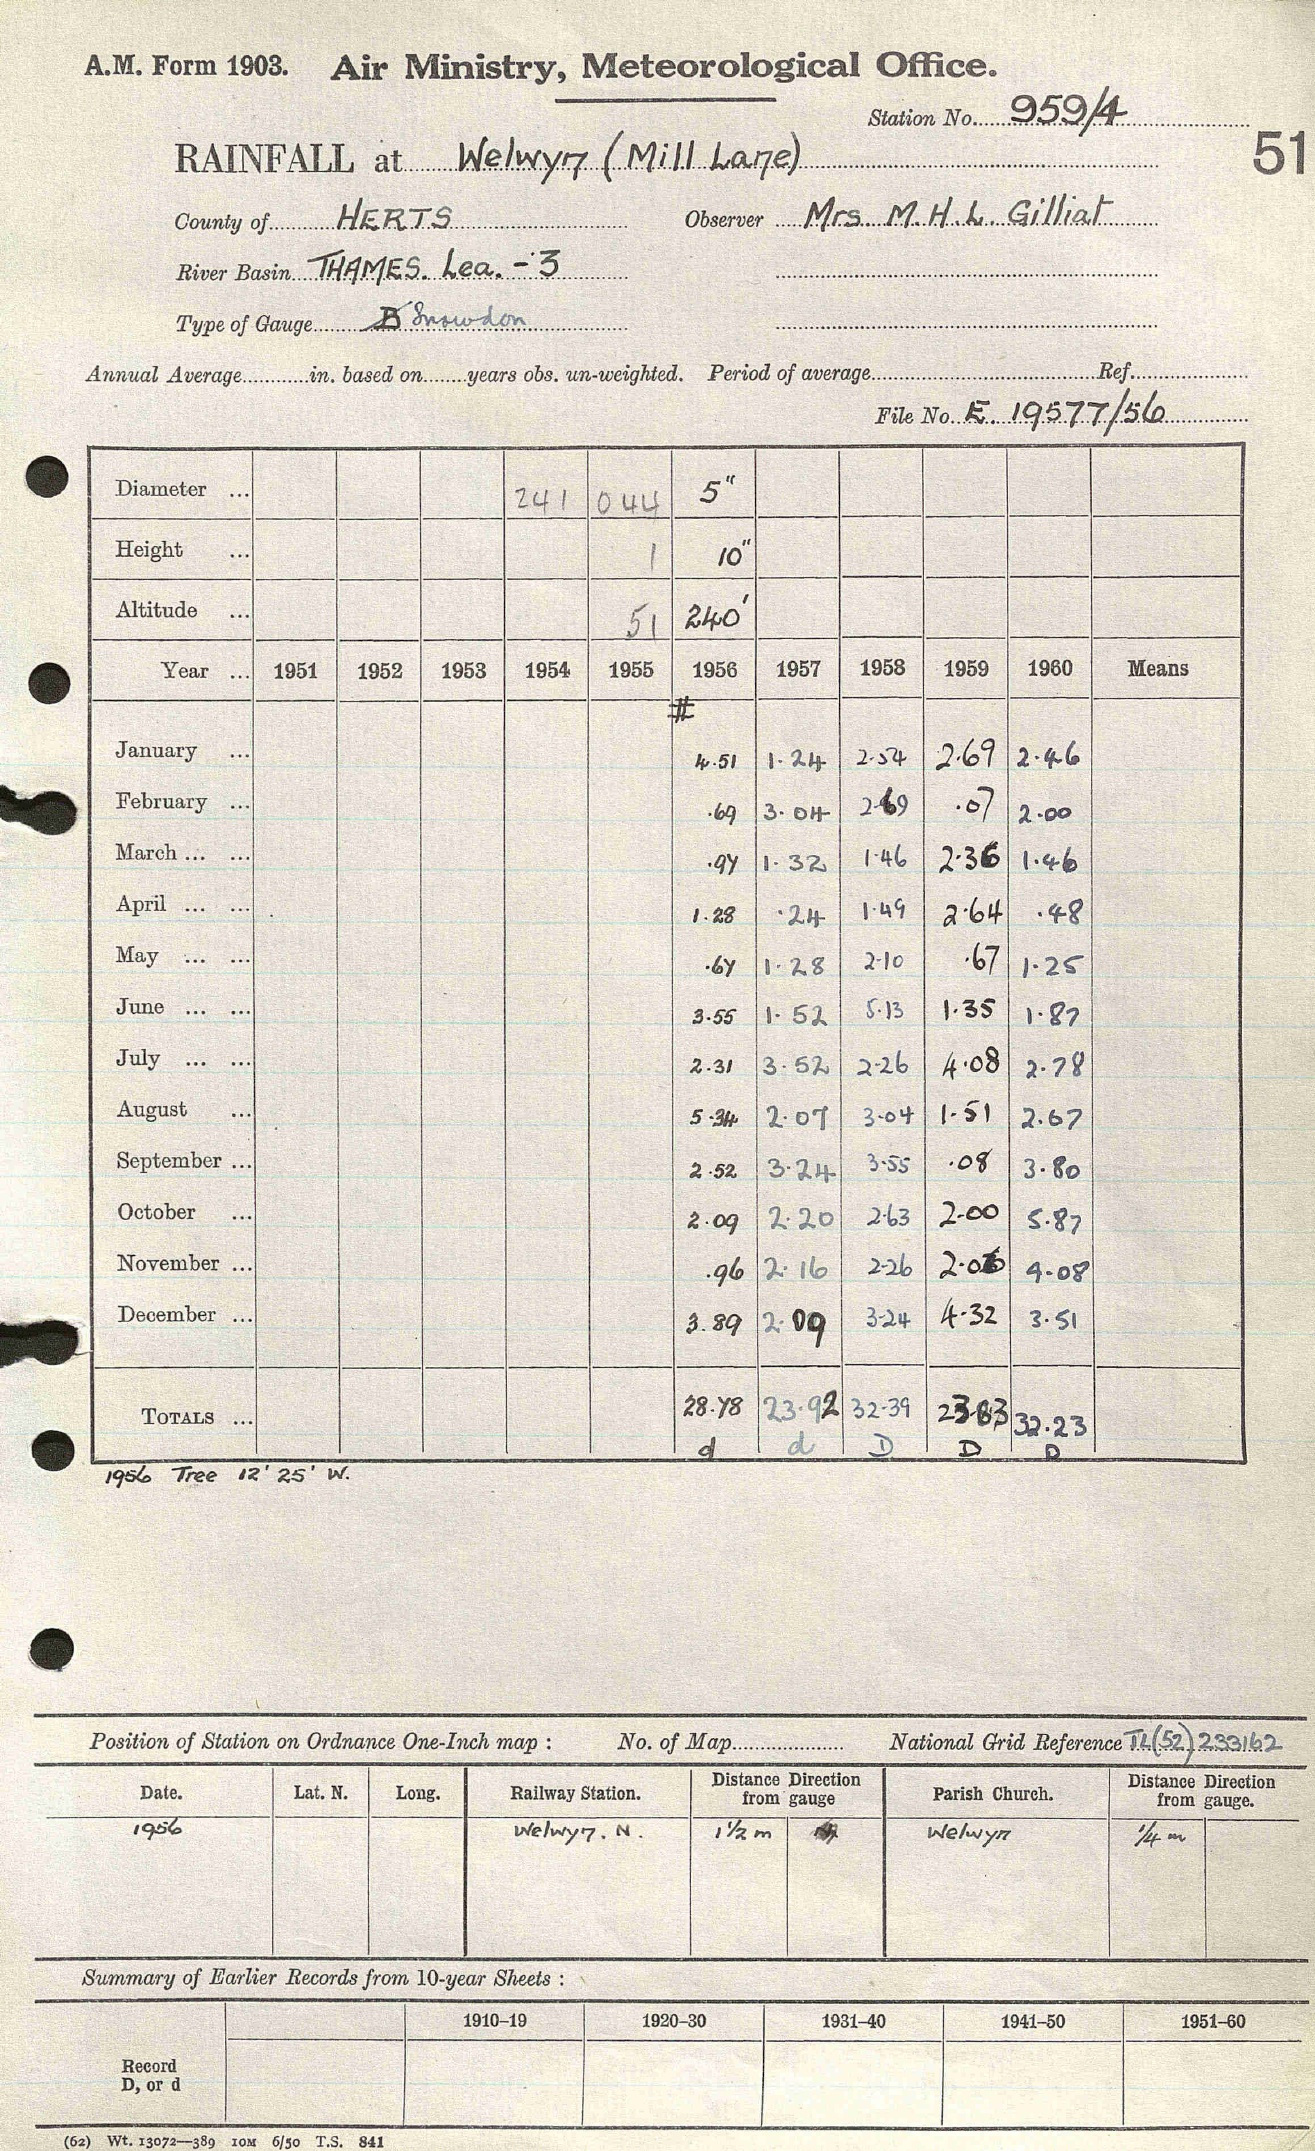 A.M. Form 1903. Air Ministry, Meteorological Office.
Station No. 959/4
51
RAINFALL at Welwyn (Mill Lane)
County of HERTS Observer Mrs. M.H.L. Gilliat
River Basin THAMES. Lea. - 3
Type of Gauge B Snowdon
Annual Average in. based on years obs. un-weighted. Period of average Ref.
File No. E. 19577/56
Diameter ... 241 044 5"
Height ... 1 10"
Altitude ... 51 240'
Year ... 1951 1952 1953 1954 1955 1956 1957 1958 1959 1960 Means
#
January ... 4.51 1.24 2.54 2.69 2.46
February ... .69 3.04 2.69 .07 2.00
March ... ... .97 1.32 1.46 2.36 1.46
April ... ... 1.28 .24 1.49 2.64 .48
May ... ... .67 1.28 2.10 .67 1.25
June ... ... 3.55 1.52 5.13 1.35 1.87
July ... ... 2.31 3.52 2.26 4.08 2.78
August ... 5.34 2.07 3.04 1.51 2.67
September ... 2.52 3.24 3.55 .08 3.80
October ... 2.09 2.20 2.63 2.00 5.87
November ... .96 2.16 2.26 2.06 4.08
December ... 3.89 2.09 3.24 4.32 3.51
TOTALS ... 28.78 23.92 32.39 23.83 32.23
d d D D D
1956 Tree 12' 25' W.
Position of Station on Ordnance One-Inch map : No. of Map National Grid Reference TL(52)233162
Date. Lat. N. Long. Railway Station. Distance from gauge Direction Parish Church. Distance from gauge. Direction
1956 Welwyn. N. 1½ m Welwyn ¼ m
Summary of Earlier Records from 10-year Sheets :
1910–19 1920–30 1931–40 1941–50 1951–60
Record
D, or d
(62) Wt. 13072—389 10M 6/50 T.S. 841